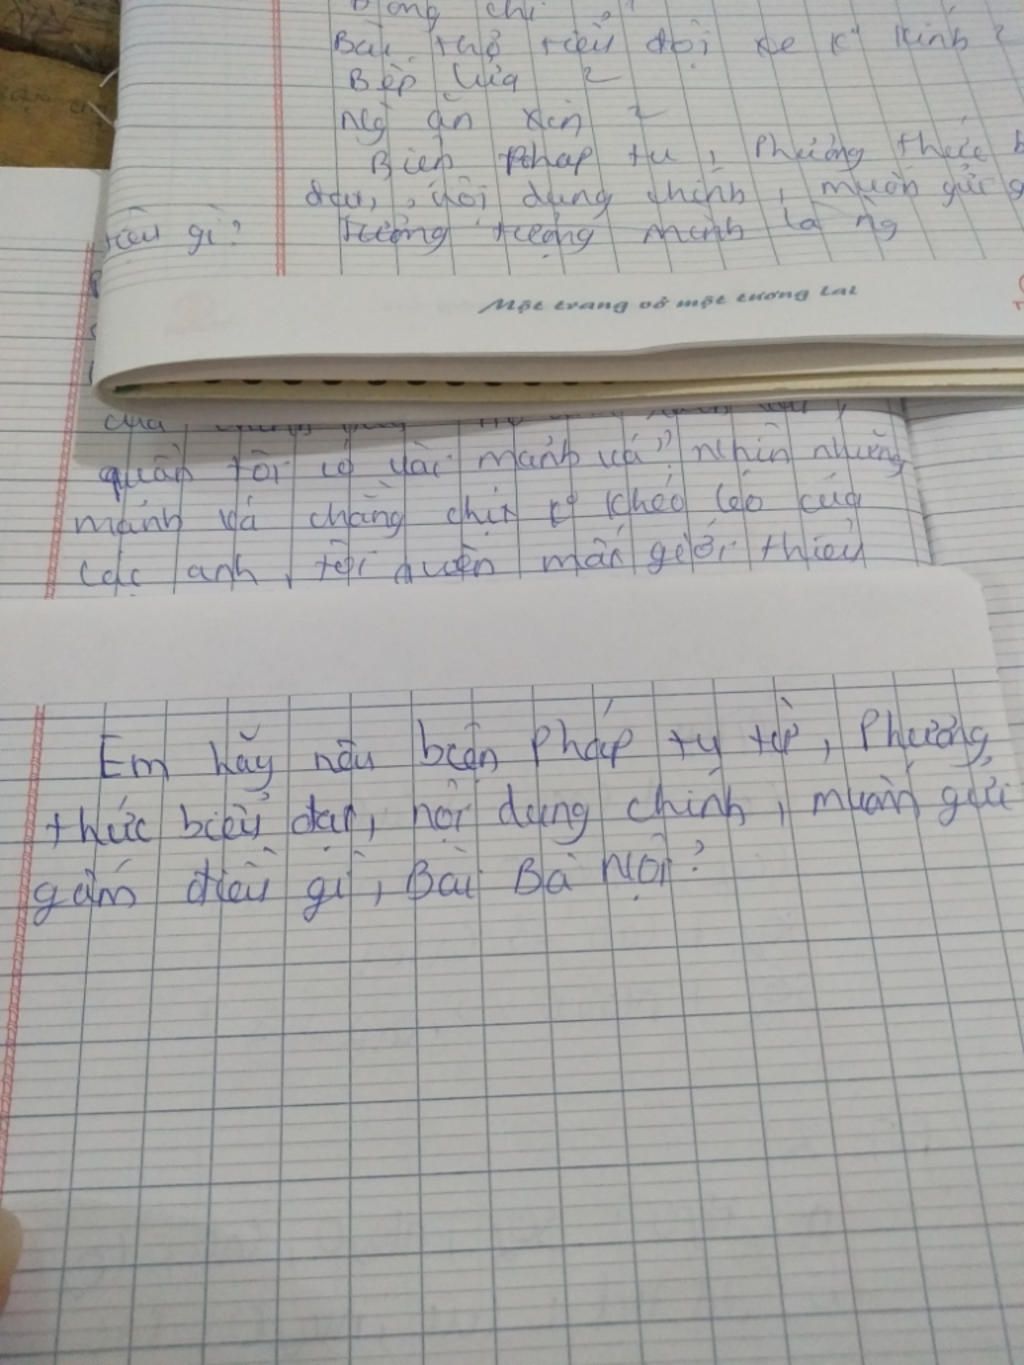 Đồng chí
Bài thơ tiểu đội xe K° kính 2
Bếp lửa 2
Biện Pháp tu, Phương thức b
đạt, nội dung chính, muốn gửi g
điều gì? tưởng tượng mình là ng
Một trang vở một tương lai
của
quần tôi có vài mảnh vá" nhìn những
mảnh vá chằng chịt K° khéo léo của
các anh, tôi quên mất giới thiệu
Em hãy nêu biện Pháp tu từ, Phương
thức biểu đạt, nội dung chính, muốn gửi
gắm điều gì, Bài Bà Nội?